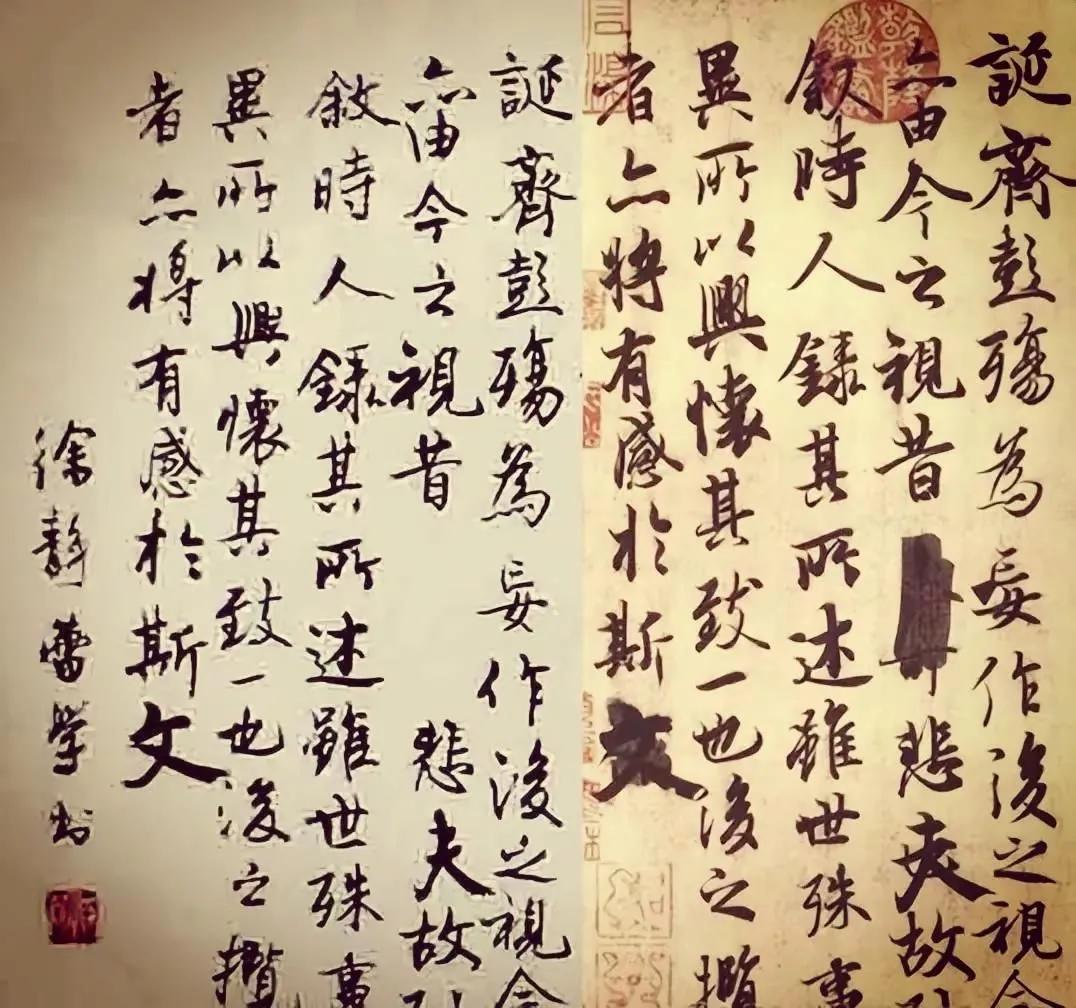 誕齊彭殤為妄作後之視今
亦由今之視昔悲夫故
敘時人錄其所述雖世殊事
異所以興懷其致一也後之攬
者亦將有感於斯文
乾隆鑑賞
誕齊彭殤為妄作後之視今
亦由今之視昔悲夫故
敘時人錄其所述雖世殊事
異所以興懷其致一也後之攬
者亦將有感於斯文
徐靜蕾學書